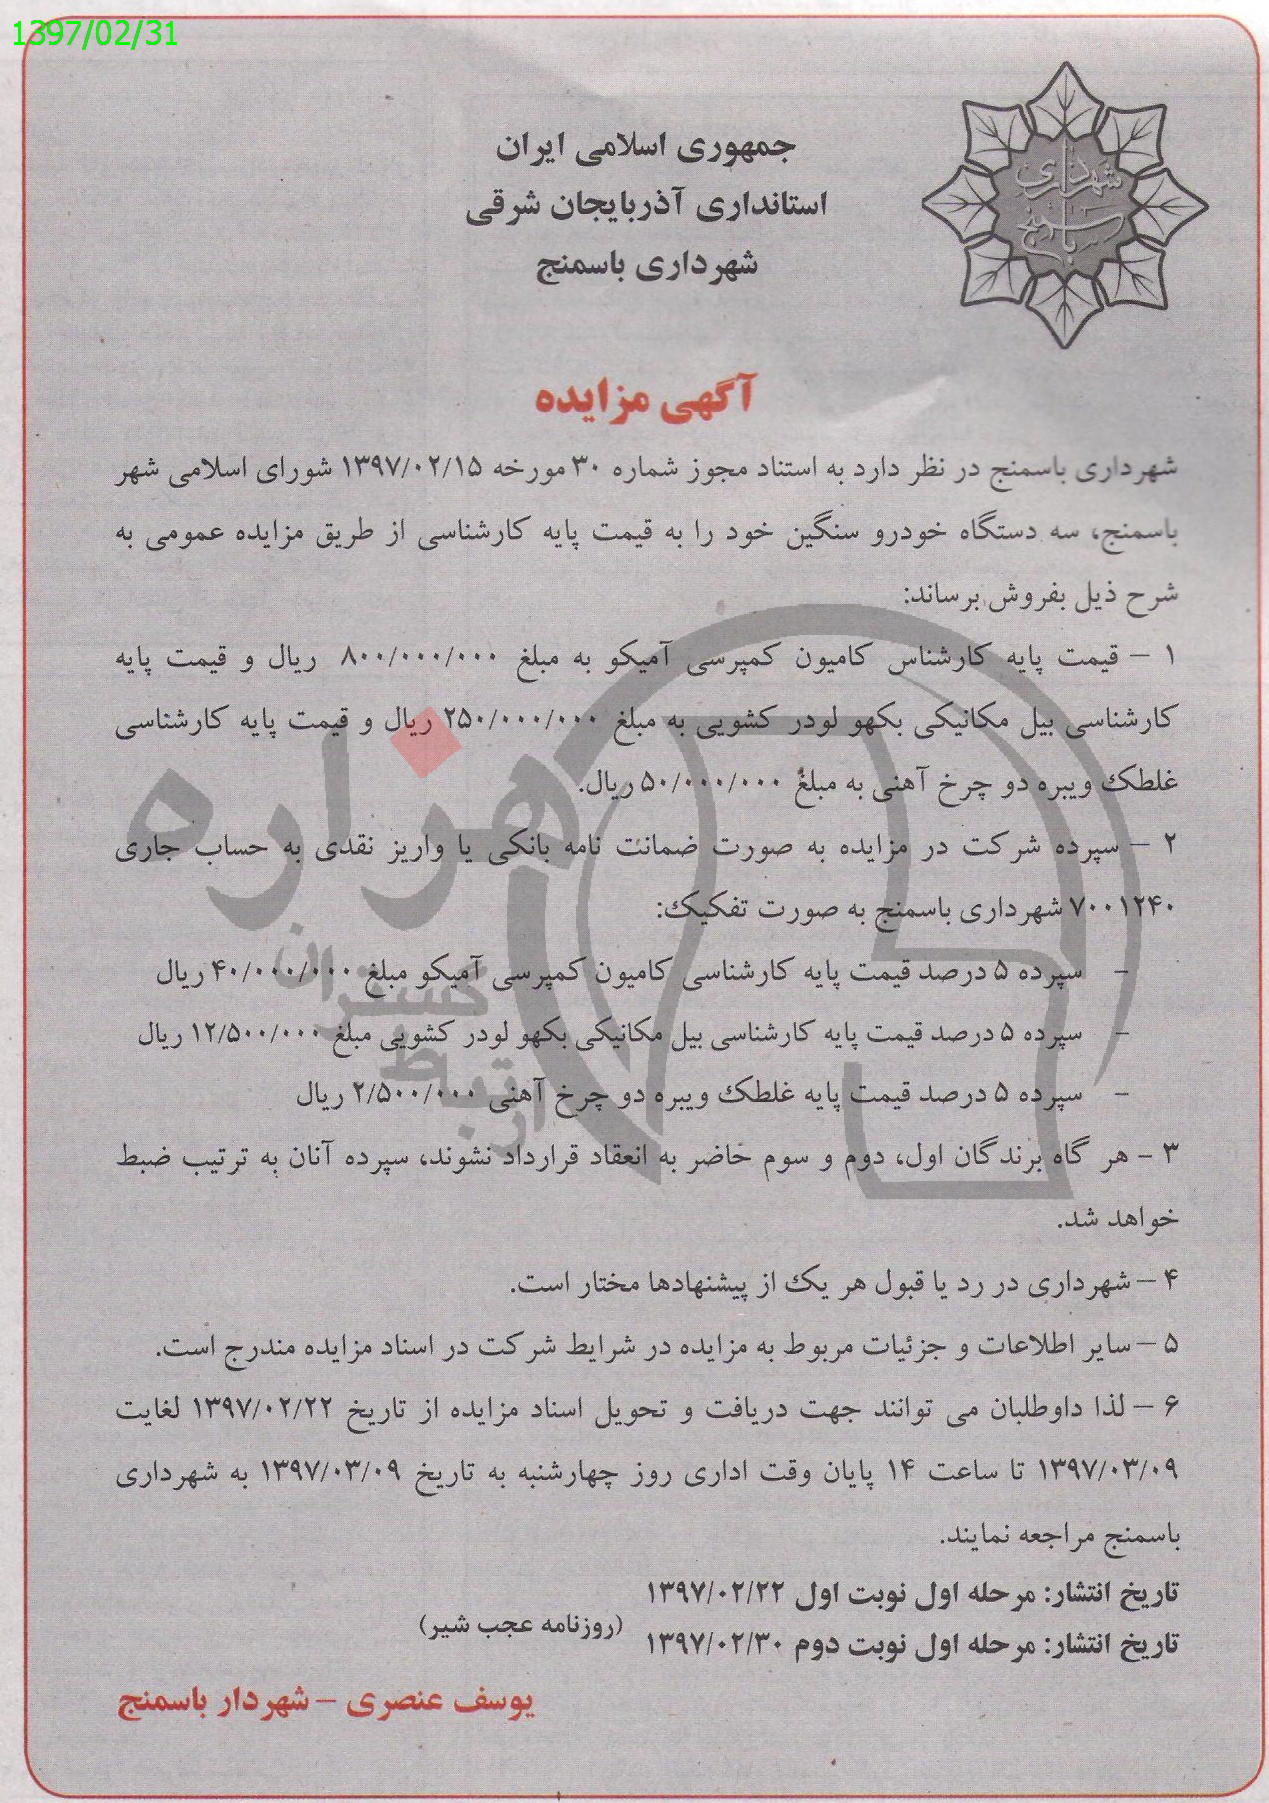 1397/02/31
شهرداری
باسمنج
جمهوری اسلامی ایران
استانداری آذربایجان شرقی
شهرداری باسمنج
آگهی مزایده
شهرداری باسمنج در نظر دارد به استناد مجوز شماره ۳۰ مورخه ۱۳۹۷/۰۲/۱۵ شورای اسلامی شهر
باسمنج، سه دستگاه خودرو سنگین خود را به قیمت پایه کارشناسی از طریق مزایده عمومی به
شرح ذیل بفروش برساند:
۱ – قیمت پایه کارشناس کامیون کمپرسی آمیکو به مبلغ ۸۰۰/۰۰۰/۰۰۰ ریال و قیمت پایه
کارشناسی بیل مکانیکی بکهو لودر کشویی به مبلغ ۲۵۰/۰۰۰/۰۰۰ ریال و قیمت پایه کارشناسی
غلطک ویبره دو چرخ آهنی به مبلغ ۵۰/۰۰۰/۰۰۰ ریال.
۲ – سپرده شرکت در مزایده به صورت ضمانت نامه بانکی یا واریز نقدی به حساب جاری
۷۰۰۱۲۴۰ شهرداری باسمنج به صورت تفکیک:
- سپرده ۵ درصد قیمت پایه کارشناسی کامیون کمپرسی آمیکو مبلغ ۴۰/۰۰۰/۰۰۰ ریال
- سپرده ۵ درصد قیمت پایه کارشناسی بیل مکانیکی بکهو لودر کشویی مبلغ ۱۲/۵۰۰/۰۰۰ ریال
- سپرده ۵ درصد قیمت پایه غلطک ویبره دو چرخ آهنی ۲/۵۰۰/۰۰۰ ریال
۳ – هر گاه برندگان اول، دوم و سوم حاضر به انعقاد قرارداد نشوند، سپرده آنان به ترتیب ضبط
خواهد شد.
۴ – شهرداری در رد یا قبول هر یک از پیشنهادها مختار است.
۵ – سایر اطلاعات و جزئیات مربوط به مزایده در شرایط شرکت در اسناد مزایده مندرج است.
۶ – لذا داوطلبان می توانند جهت دریافت و تحویل اسناد مزایده از تاریخ ۱۳۹۷/۰۲/۲۲ لغایت
۱۳۹۷/۰۳/۰۹ تا ساعت ۱۴ پایان وقت اداری روز چهارشنبه به تاریخ ۱۳۹۷/۰۳/۰۹ به شهرداری
باسمنج مراجعه نمایند.
تاریخ انتشار: مرحله اول نوبت اول ۱۳۹۷/۰۲/۲۲
(روزنامه عجب شیر)
تاریخ انتشار: مرحله اول نوبت دوم ۱۳۹۷/۰۲/۳۰
یوسف عنصری – شهردار باسمنج
هزاره
گستران
ارتباط